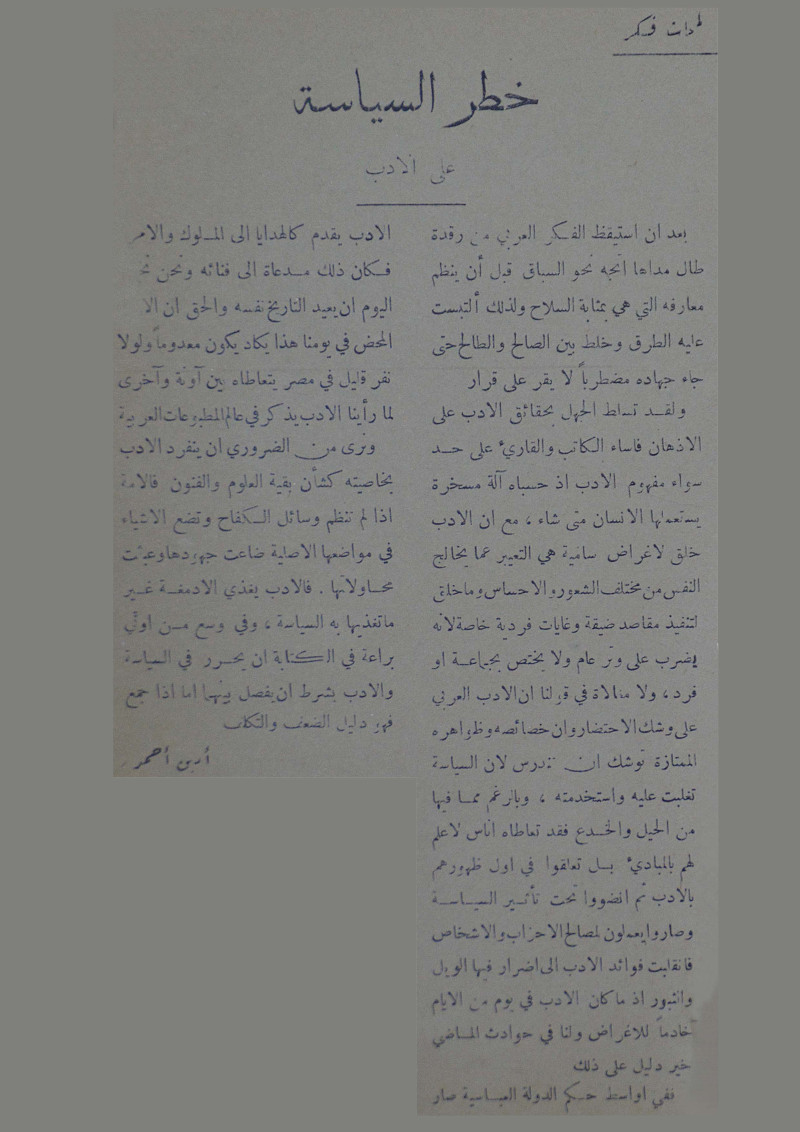 لمحات فكر
خطر السياسة
على الادب
بعد ان استيقظ الفكر العربي من رقدة
طال مداها اتجه نحو السباق قبل أن ينظم
معارفه التي هي بمثابة السلاح ولذلك ألتبست
عليه الطرق وخلط بين الصالح والطالح حتى
جاء جهاده مضطرباً لا يقر على قرار
ولقد تسلط الجهل بحقائق الادب على
الاذهان فاساء الكاتب والقاريء على حد
سواء مفهوم الادب اذ حسباه آلة مسخرة
يستعملها الانسان متى شاء ، مع ان الادب
خلق لاغراض سامية هي التعبير عما يخالج
النفس من مختلف الشعور والاحساس وما خلق
لتنفيذ مقاصد ضيقة وغايات فردية خاصة لانه
يضرب على وتر عام ولا يختص بجماعة او
فرد ، ولا مغالاة في قولنا ان الادب العربي
على وشك الاحتضار وان خصائصه وظواهره
الممتازة توشك ان تدرس لان السياسة
تغلبت عليه واستخدمته ، وبالرغم مما فيها
من الحيل والخدع فقد تعاطاه اناس لا علم
لهم بالمباديء بل تعلقوا في اول ظهورهم
بالادب ثم انضووا تحت تأثير السياسة
وصاروا يعملون لمصالح الاحزاب والاشخاص
فانقلبت فوائد الادب الى اضرار فيها الويل
والثبور اذ ما كان الادب في يوم من الايام
خادماً للاغراض ولنا في حوادث الماضي
خير دليل على ذلك
ففي اواسط حكم الدولة العباسية صار
الادب يقدم كالهدايا الى الملوك والامر
فكان ذلك مدعاة الى فنائه ونحن
اليوم ان يعيد التاريخ نفسه والحق ان
المحض في يومنا هذا يكاد يكون معدوماً ولولا
نفر قليل في مصر يتعاطاه بين آونة وآخرى
لما رأينا الادب يذكر في عالم المطبوعات العربية
ونرى من الضروري ان ينفرد الادب
بخاصيته كشأن بقية العلوم والفنون فالامة
اذا لم تنظم وسائل الكفاح وتضع الاشياء
في مواضعها الاصلية ضاعت جهودها وعبثت
محاولاتها . فالادب يغذي الادمغة غير
ما تغذيها به السياسة ، وفي وسع من اوتي
براعة في الكتابة ان يحرر في السياسة
والادب بشرط ان يفصل بينهما اما اذا جمع
فهو دليل الضعف والتكلف
أمين أحمد